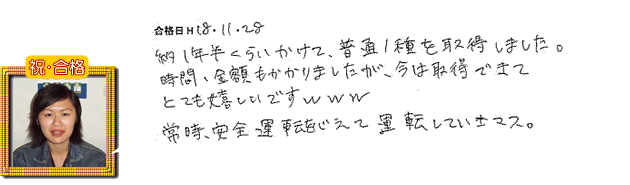 合格日 H18.11.28
約1年半くらいかけて、普通1種を取得しました。
祝・合格
時間、金額もかかりましたが、今は取得できて
とても嬉しいですwww
常時、安全運転
運転していきマス。